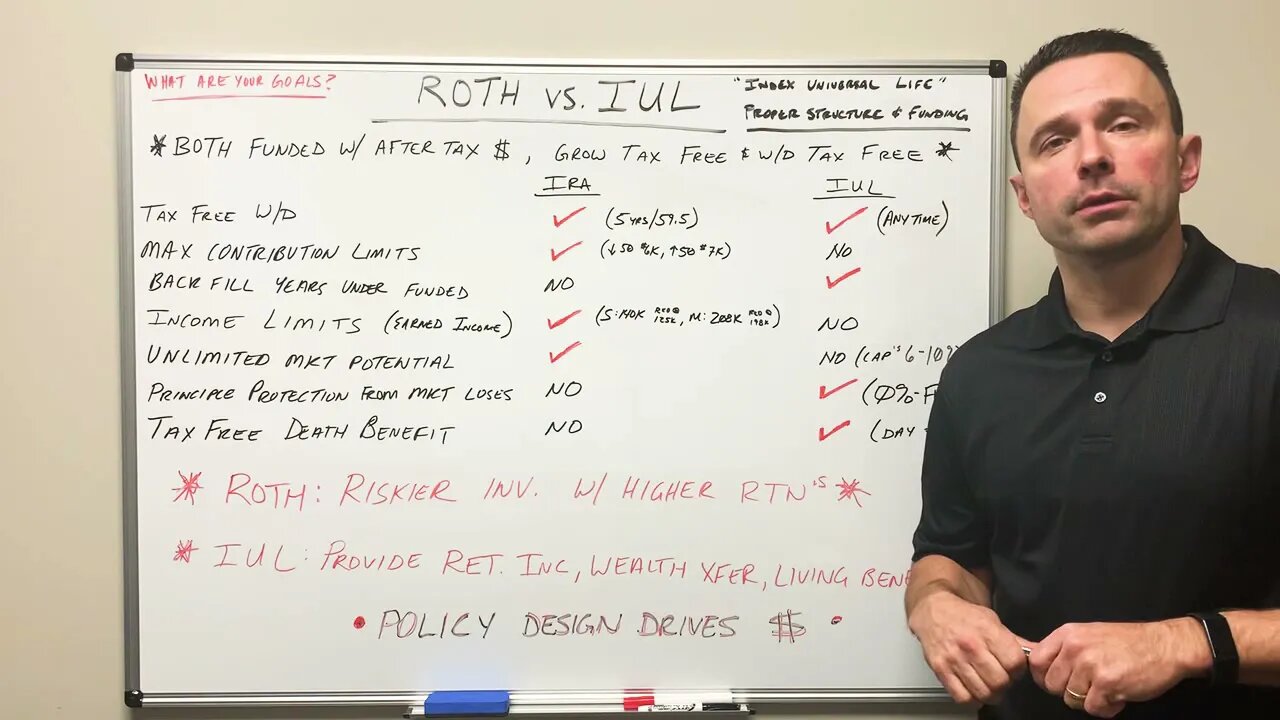 WHAT ARE YOUR GOALS?
ROTH VS. IUL
"INDEX UNIVERSAL LIFE"
PROPER STRUCTURE & FUNDING
* BOTH FUNDED W/ AFTER TAX $, GROW TAX FREE & W/D TAX FREE *
IRA IUL
TAX FREE W/D ✓ (5 YRS/59.5) ✓ (ANYTIME)
MAX CONTRIBUTION LIMITS ✓ (↓50 $6K, ↑50 $7K) NO
BACK FILL YEARS UNDER FUNDED NO ✓
INCOME LIMITS (EARNED INCOME) ✓ (S: 140K RED @ 125K, M: 208K RED @ 198K) NO
UNLIMITED MKT POTENTIAL ✓ NO (CAP'S 6-10%
PRINCIPLE PROTECTION FROM MKT LOSES NO ✓ (0%-F
TAX FREE DEATH BENEFIT NO ✓ (DAY
* ROTH: RISKIER INV. W/ HIGHER RTN'S *
* IUL: PROVIDE RET. INC, WEALTH XFER, LIVING BENE
• POLICY DESIGN DRIVES $ •